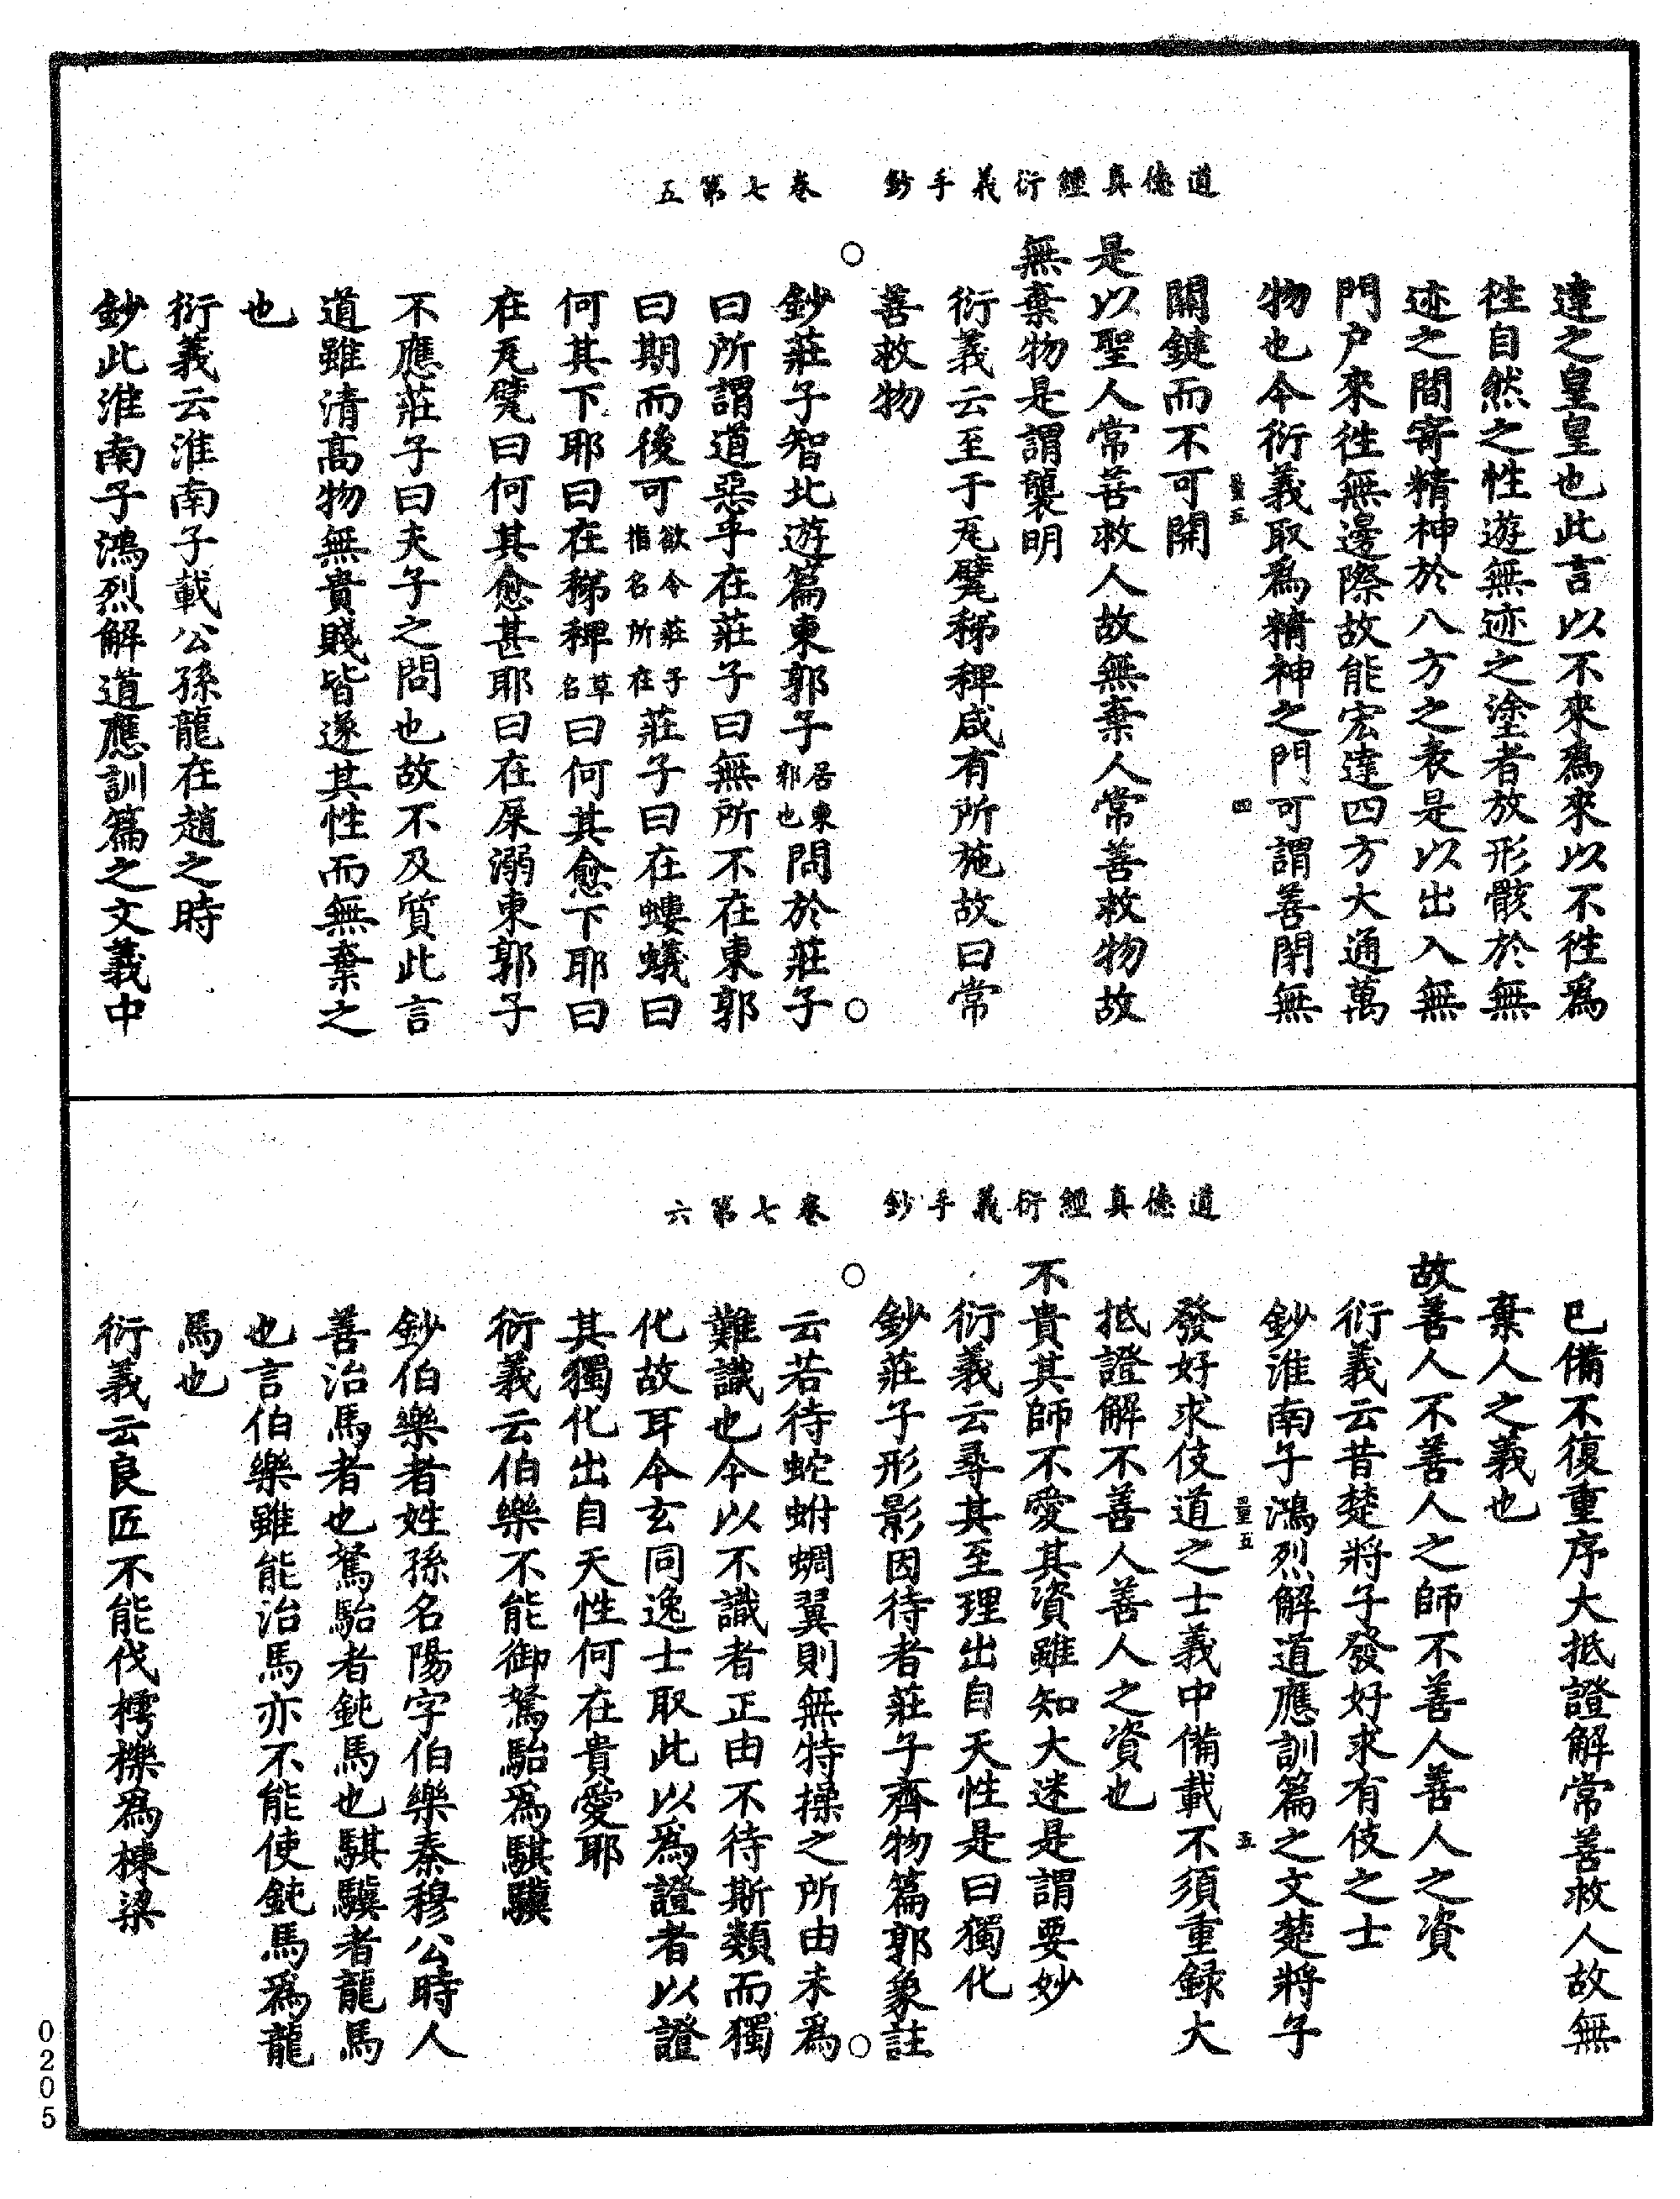 道德真經衍義手鈔　卷七第五
達之皇皇也此言以不來爲來以不徃爲
徃自然之性遊無迹之塗者放形骸於無
迹之間寄精神於八方之表是以出入無
門戶來徃無邊際故能宏達四方大通萬
物也今衍義取爲精神之門可謂善閉無
五
四
關鍵而不可開
是以聖人常善救人故無棄人常善救物故
無棄物是謂襲明
衍義云至于瓦甓稊稗咸有所施故曰常
善救物
鈔莊子智北遊篇東郭子居東郭也問於莊子
曰所謂道惡乎在莊子曰無所不在東郭
曰期而後可欲令莊子指名所在莊子曰在螻蟻曰
何其下耶曰在稊稗草名曰何其愈下耶曰
在瓦甓曰何其愈甚耶曰在屎溺東郭子
不應莊子曰夫子之問也故不及質此言
道雖清高物無貴賤皆遂其性而無棄之
也
衍義云淮南子載公孫龍在趙之時
鈔此淮南子鴻烈解道應訓篇之文義中
道德真經衍義手鈔　卷七第六
已備不復重序大抵證解常善救人故無
棄人之義也
故善人不善人之師不善人善人之資
衍義云昔楚將子發好求有伎之士
鈔淮南子鴻烈解道應訓篇之文楚將子
五
五
發好求伎道之士義中備載不須重録大
抵證解不善人善人之資也
不貴其師不愛其資雖知大迷是謂要妙
衍義云尋其至理出自天性是曰獨化
鈔莊子形影因待者莊子齊物篇郭象註
云若待蛇蚹蜩翼則無特操之所由未爲
難識也今以不識者正由不待斯類而獨
化故耳今玄同逸士取此以爲證者以證
其獨化出自天性何在貴愛耶
衍義云伯樂不能御駑駘爲騏驥
鈔伯樂者姓孫名陽字伯樂秦穆公時人
善治馬者也駑駘者鈍馬也騏驥者龍馬
也言伯樂雖能治馬亦不能使鈍馬爲龍
馬也
衍義云良匠不能伐樗櫟爲棟梁
0205